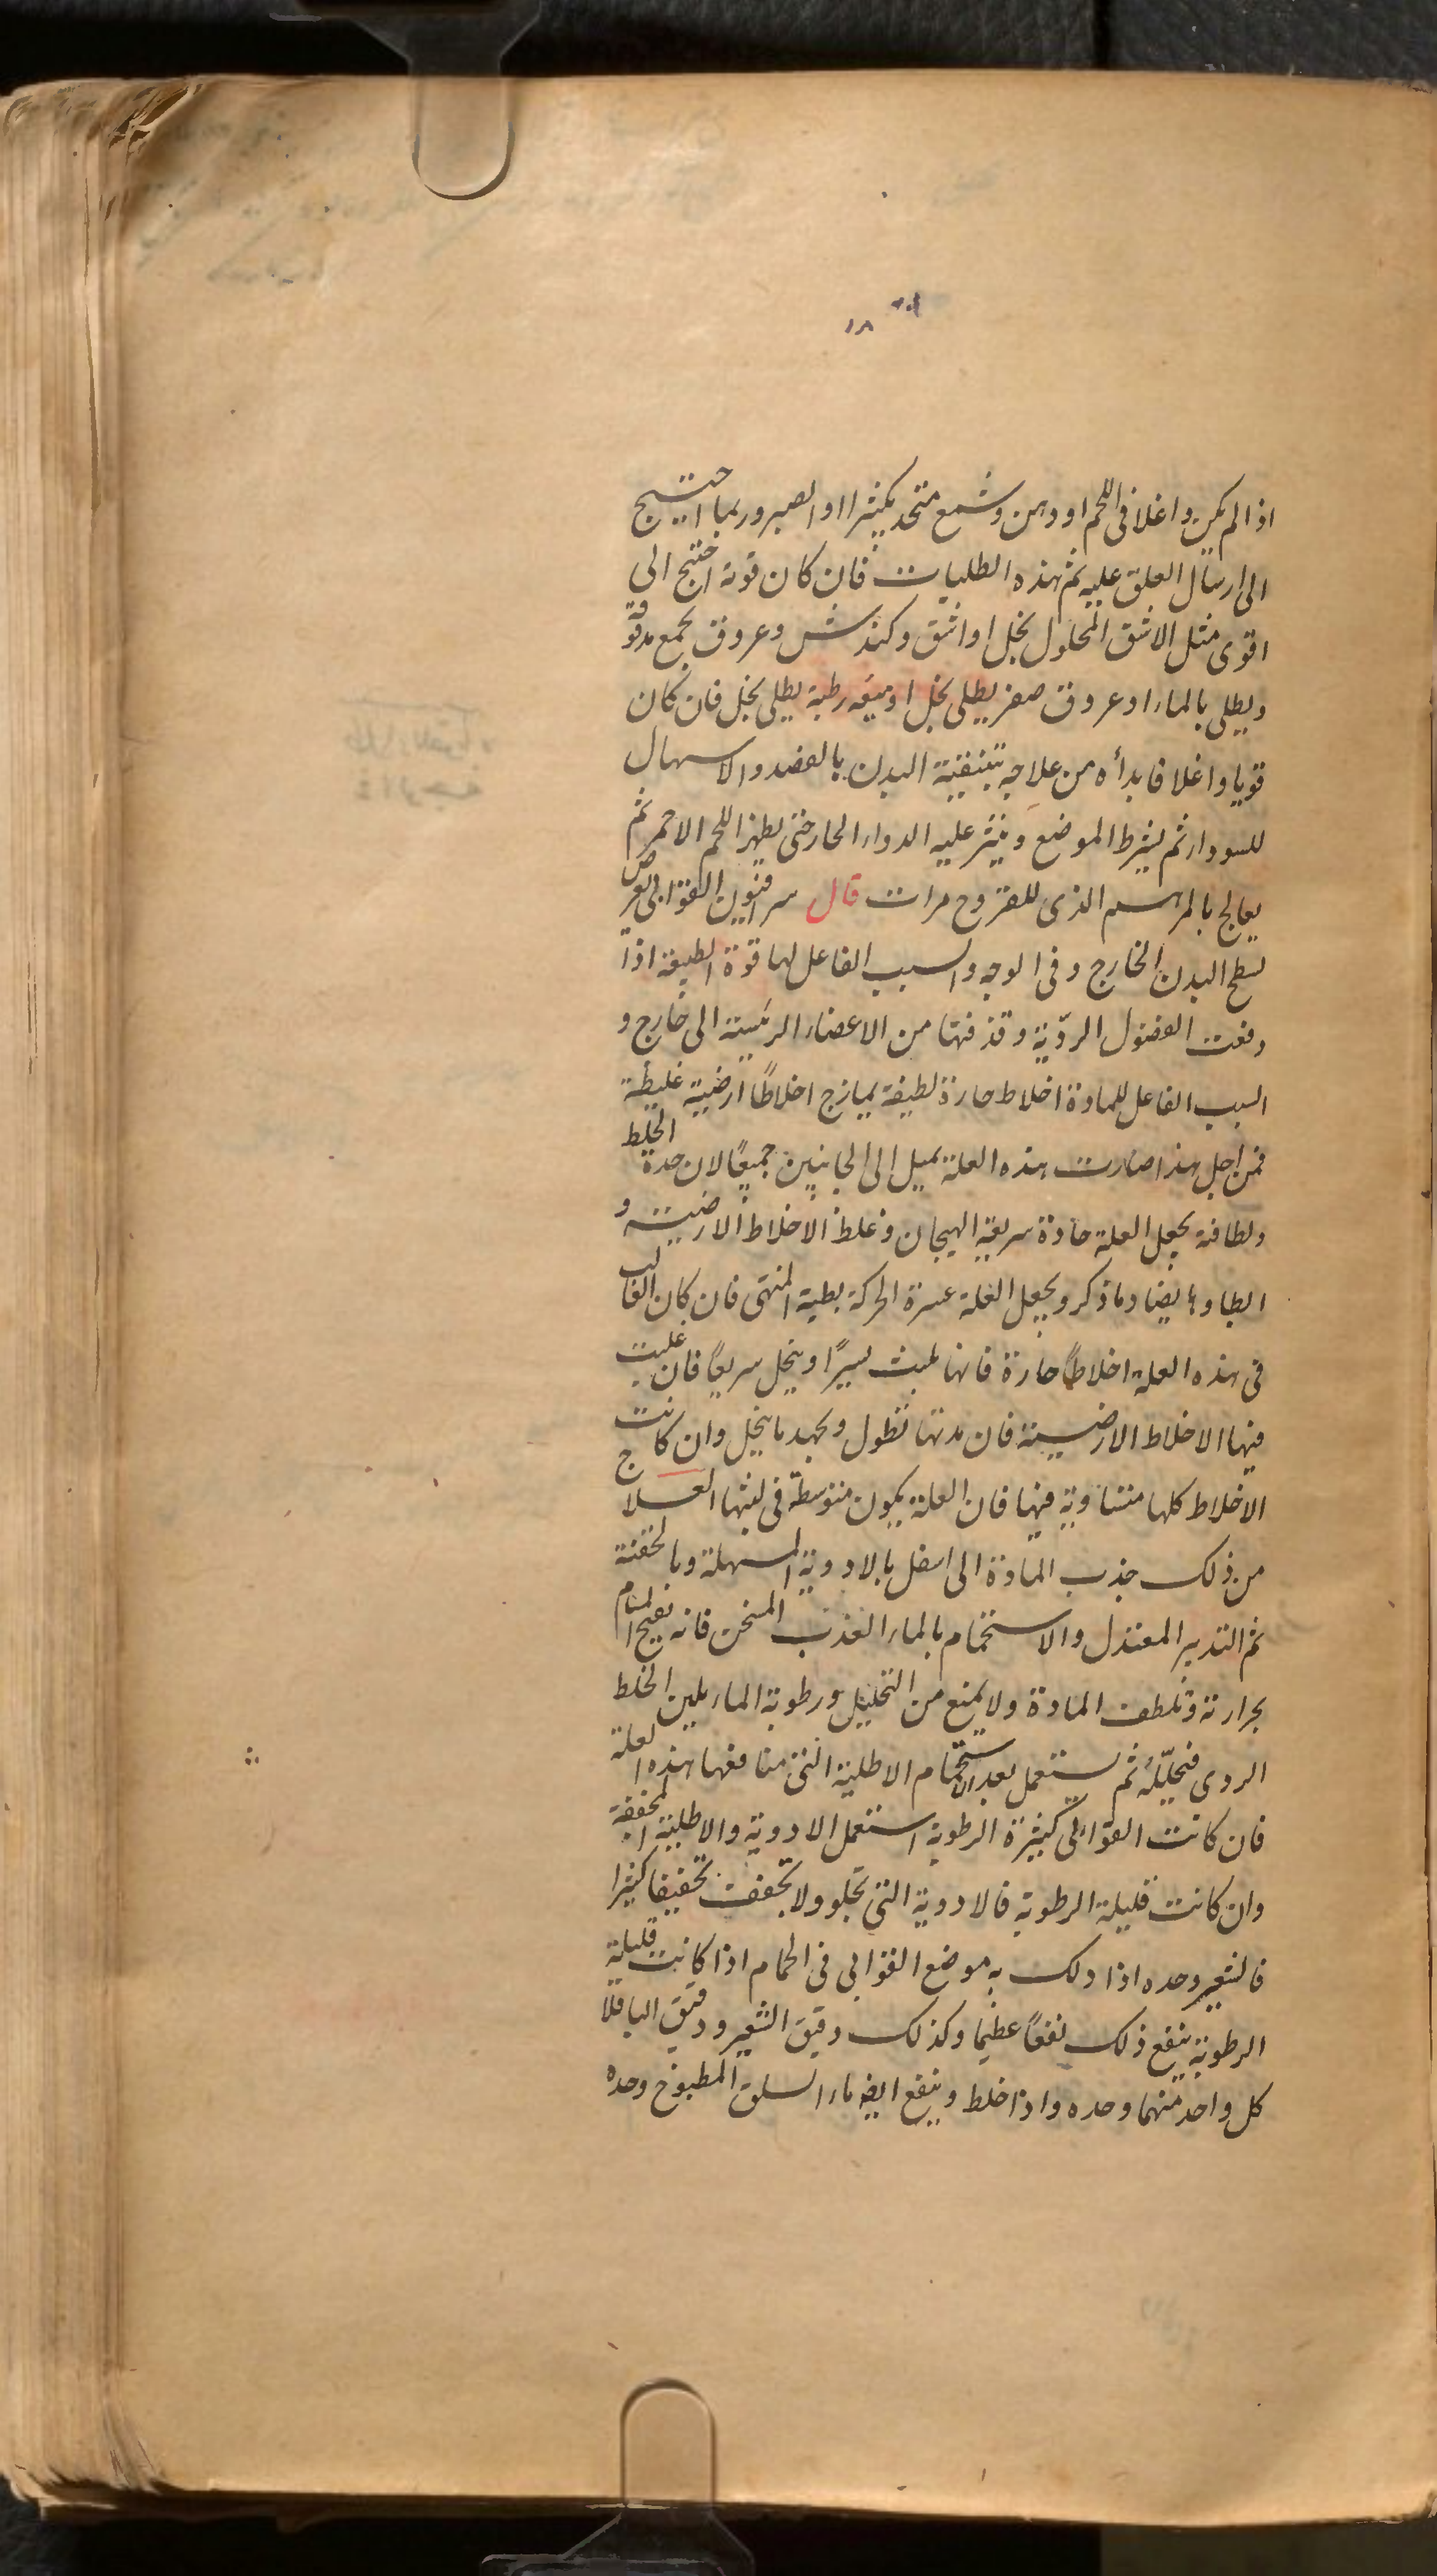 ١٨
اذا لم يكن واغلا فى اللحم او دهن وشمع متخد بكثيرا او الصبر وربما احتيج
الى ارسال العلق عليه ثم هذه الطليات فان كان قوته احتج الى
اقوى مثل الاشق المحلول بخل او اشق وكندش وعروق يجمع مدقوقه
ويطلى بالماء او عروق صفر يطلى بخل او ميعه رطبة يطلى بخل فان كان
قويا واغلا فابدأه من علاجه بتنقية البدن بالفصد والاسهال
للسوداء ثم يشرط الموضع وينثر عليه الدواء الحار حتى يظهر اللحم الاحمر ثم
يعالج بالمرهم الذى للقروح مرات قال سرافيون القوابى يعرض
لسطح البدن الخارج وفى الوجه والسبب الفاعل لها قوة الطبيعة اذا
دفعت الفضول الردّية وقذفتها من الاعضاء الرئيسة الى خارج و
السبب الفاعل للمادة اخلاط حارة لطيفة يمازج اخلاطًا ارضية غليظة
فمن اجل هذا صارت هذه العلة يميل الى الجانبين جميعًا لان حدة الخلط
ولطافته يجعل العلة حادة سريعة الهيجان وغلظ الاخلاط الارضية و
ابطاوها يضاد ما ذكر ويجعل العلة عسرة الحركة بطية المنتهى فان كان الغالب
فى هذه العلة اخلاطًا حارة فانها تلبث يسيرًا وينحل سريعًا فان غلبت
فيها الاخلاط الارضية فان مدتها تطول وبجهد ما ينحل وان كانت
الاخلاط كلها متساوية فيها فان العلة يكون متوسطة فى لبثها العلاج
من ذلك جذب المادة الى اسفل بالادوية المسهلة وبالحقنة
ثم التدبير المعتدل والاستحمام بالماء العذب المسخن فانه يفتح المسام
بحرارته وتلطف المادة ولا يمنع من التحليل ورطوبة الماء يلين الخلط
الردى فتحلّله ثم يستعمل بعد الاستحمام الاطلية التى منافعها هذه العلة
فان كانت القوابى كثيرة الرطوبة استعمل الادوية والاطلية المجففة
وان كانت قليلة الرطوبة فالادوية التى تجلو ولا تجفف تجفيفا كثيرا
فالشعير وحده اذا دلك به موضع القوابى فى الحمام اذا كانت قليلة
الرطوبة ينفع ذلك نفعًا عظيما وكذلك دقيق الشعير ودقيق الباقلا
كل واحد منهما وحده واذا خلط وينفع ايضا ماء السلق المطبوخ وحده